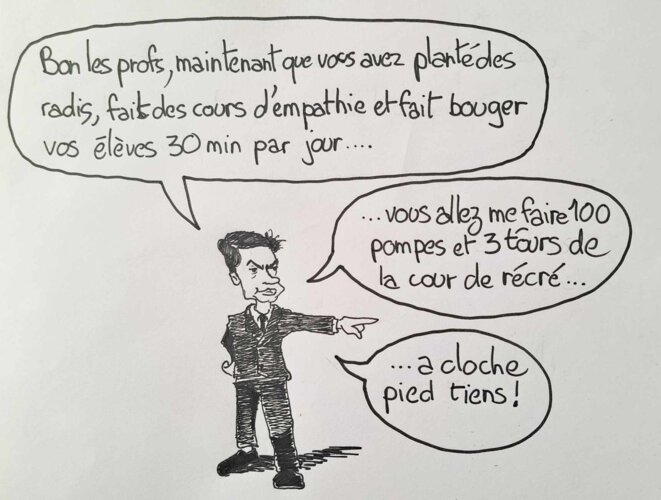 Bon les profs, maintenant que vous avez planté des
radis, fait des cours d'empathie et fait bouger
vos élèves 30 min par jour....
...vous allez me faire 100
pompes et 3 tours de
la cour de récré...
...a cloche
pied tiens !